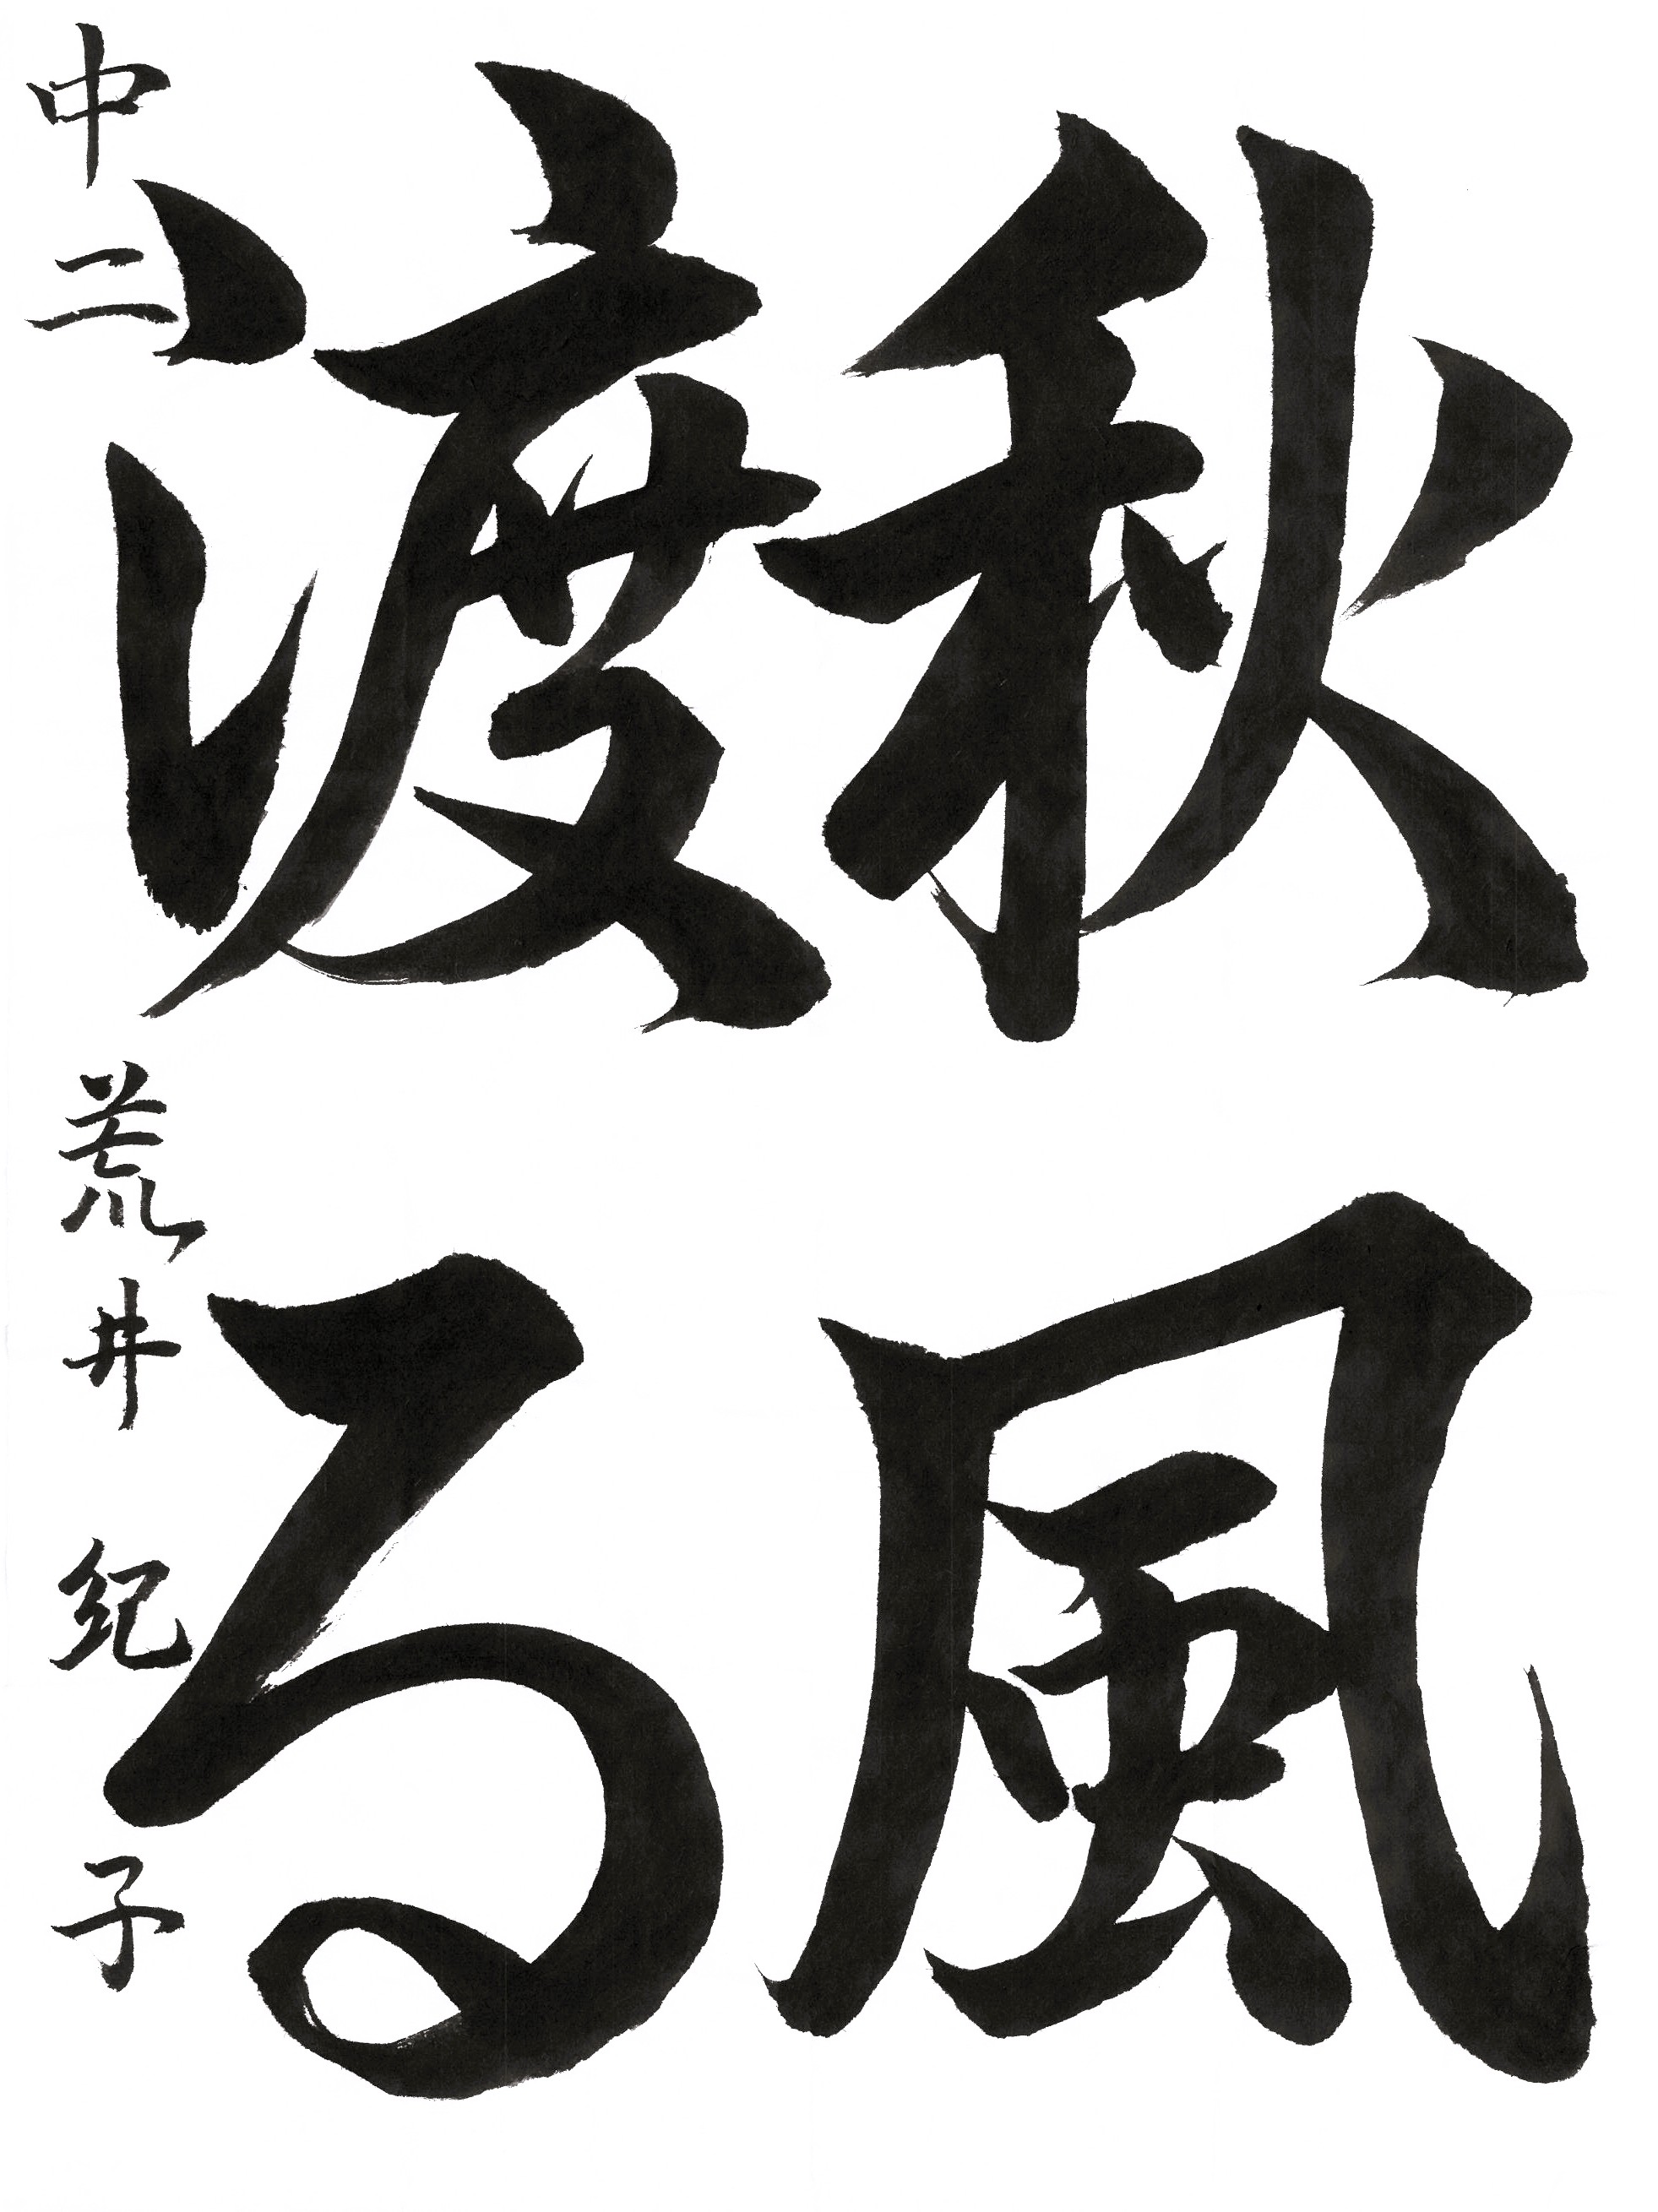 秋風
渡る
中二 荒井 紀子